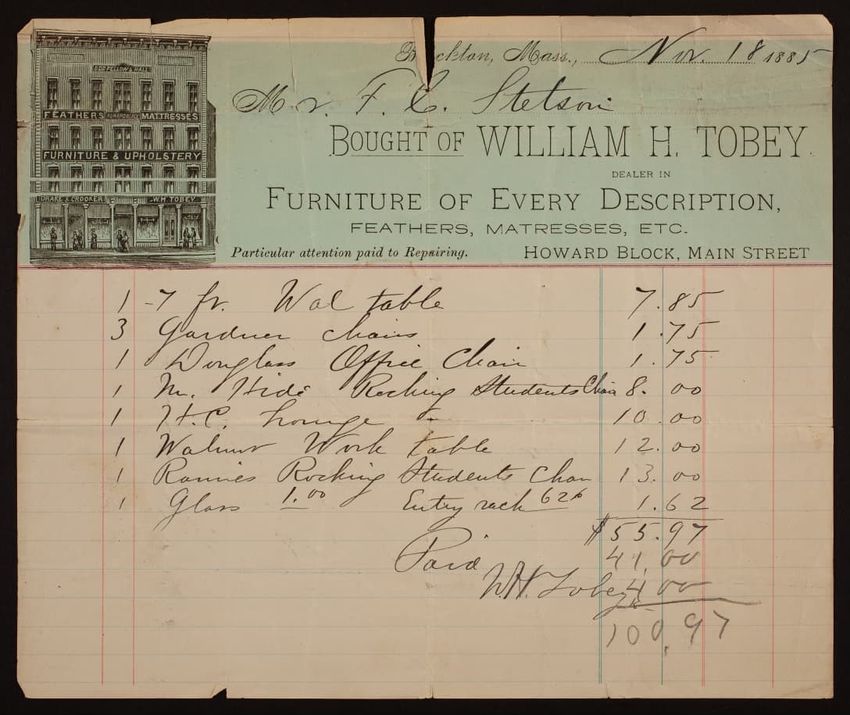 Brockton, Mass., Nov. 18 1885
Mr. F. C. Stetson
BOUGHT OF WILLIAM H. TOBEY.
DEALER IN
FURNITURE OF EVERY DESCRIPTION,
FEATHERS, MATRESSES, ETC.
Particular attention paid to Repairing. HOWARD BLOCK, MAIN STREET
ODD FELLOWS HALL
FEATHERS HOWARD BLOCK MATTRESSES
FURNITURE & UPHOLSTERY
DRAKE & CROOKER WM. TOBEY
1 - 7 fr. Wal table 7.85
3 Gardner chairs 1.75
1 Douglass Office Chair 1.75
1 M. Rocking Students Chair 8.00
1 H.C. Lounge - 10.00
1 Walnut Work table 12.00
1 Rocking Students Chair 13.00
1 Glass 1.00 Entry rack 62¢ 1.62
$55.97
Paid 41.00
W.H. Tobey 4 00
100.97